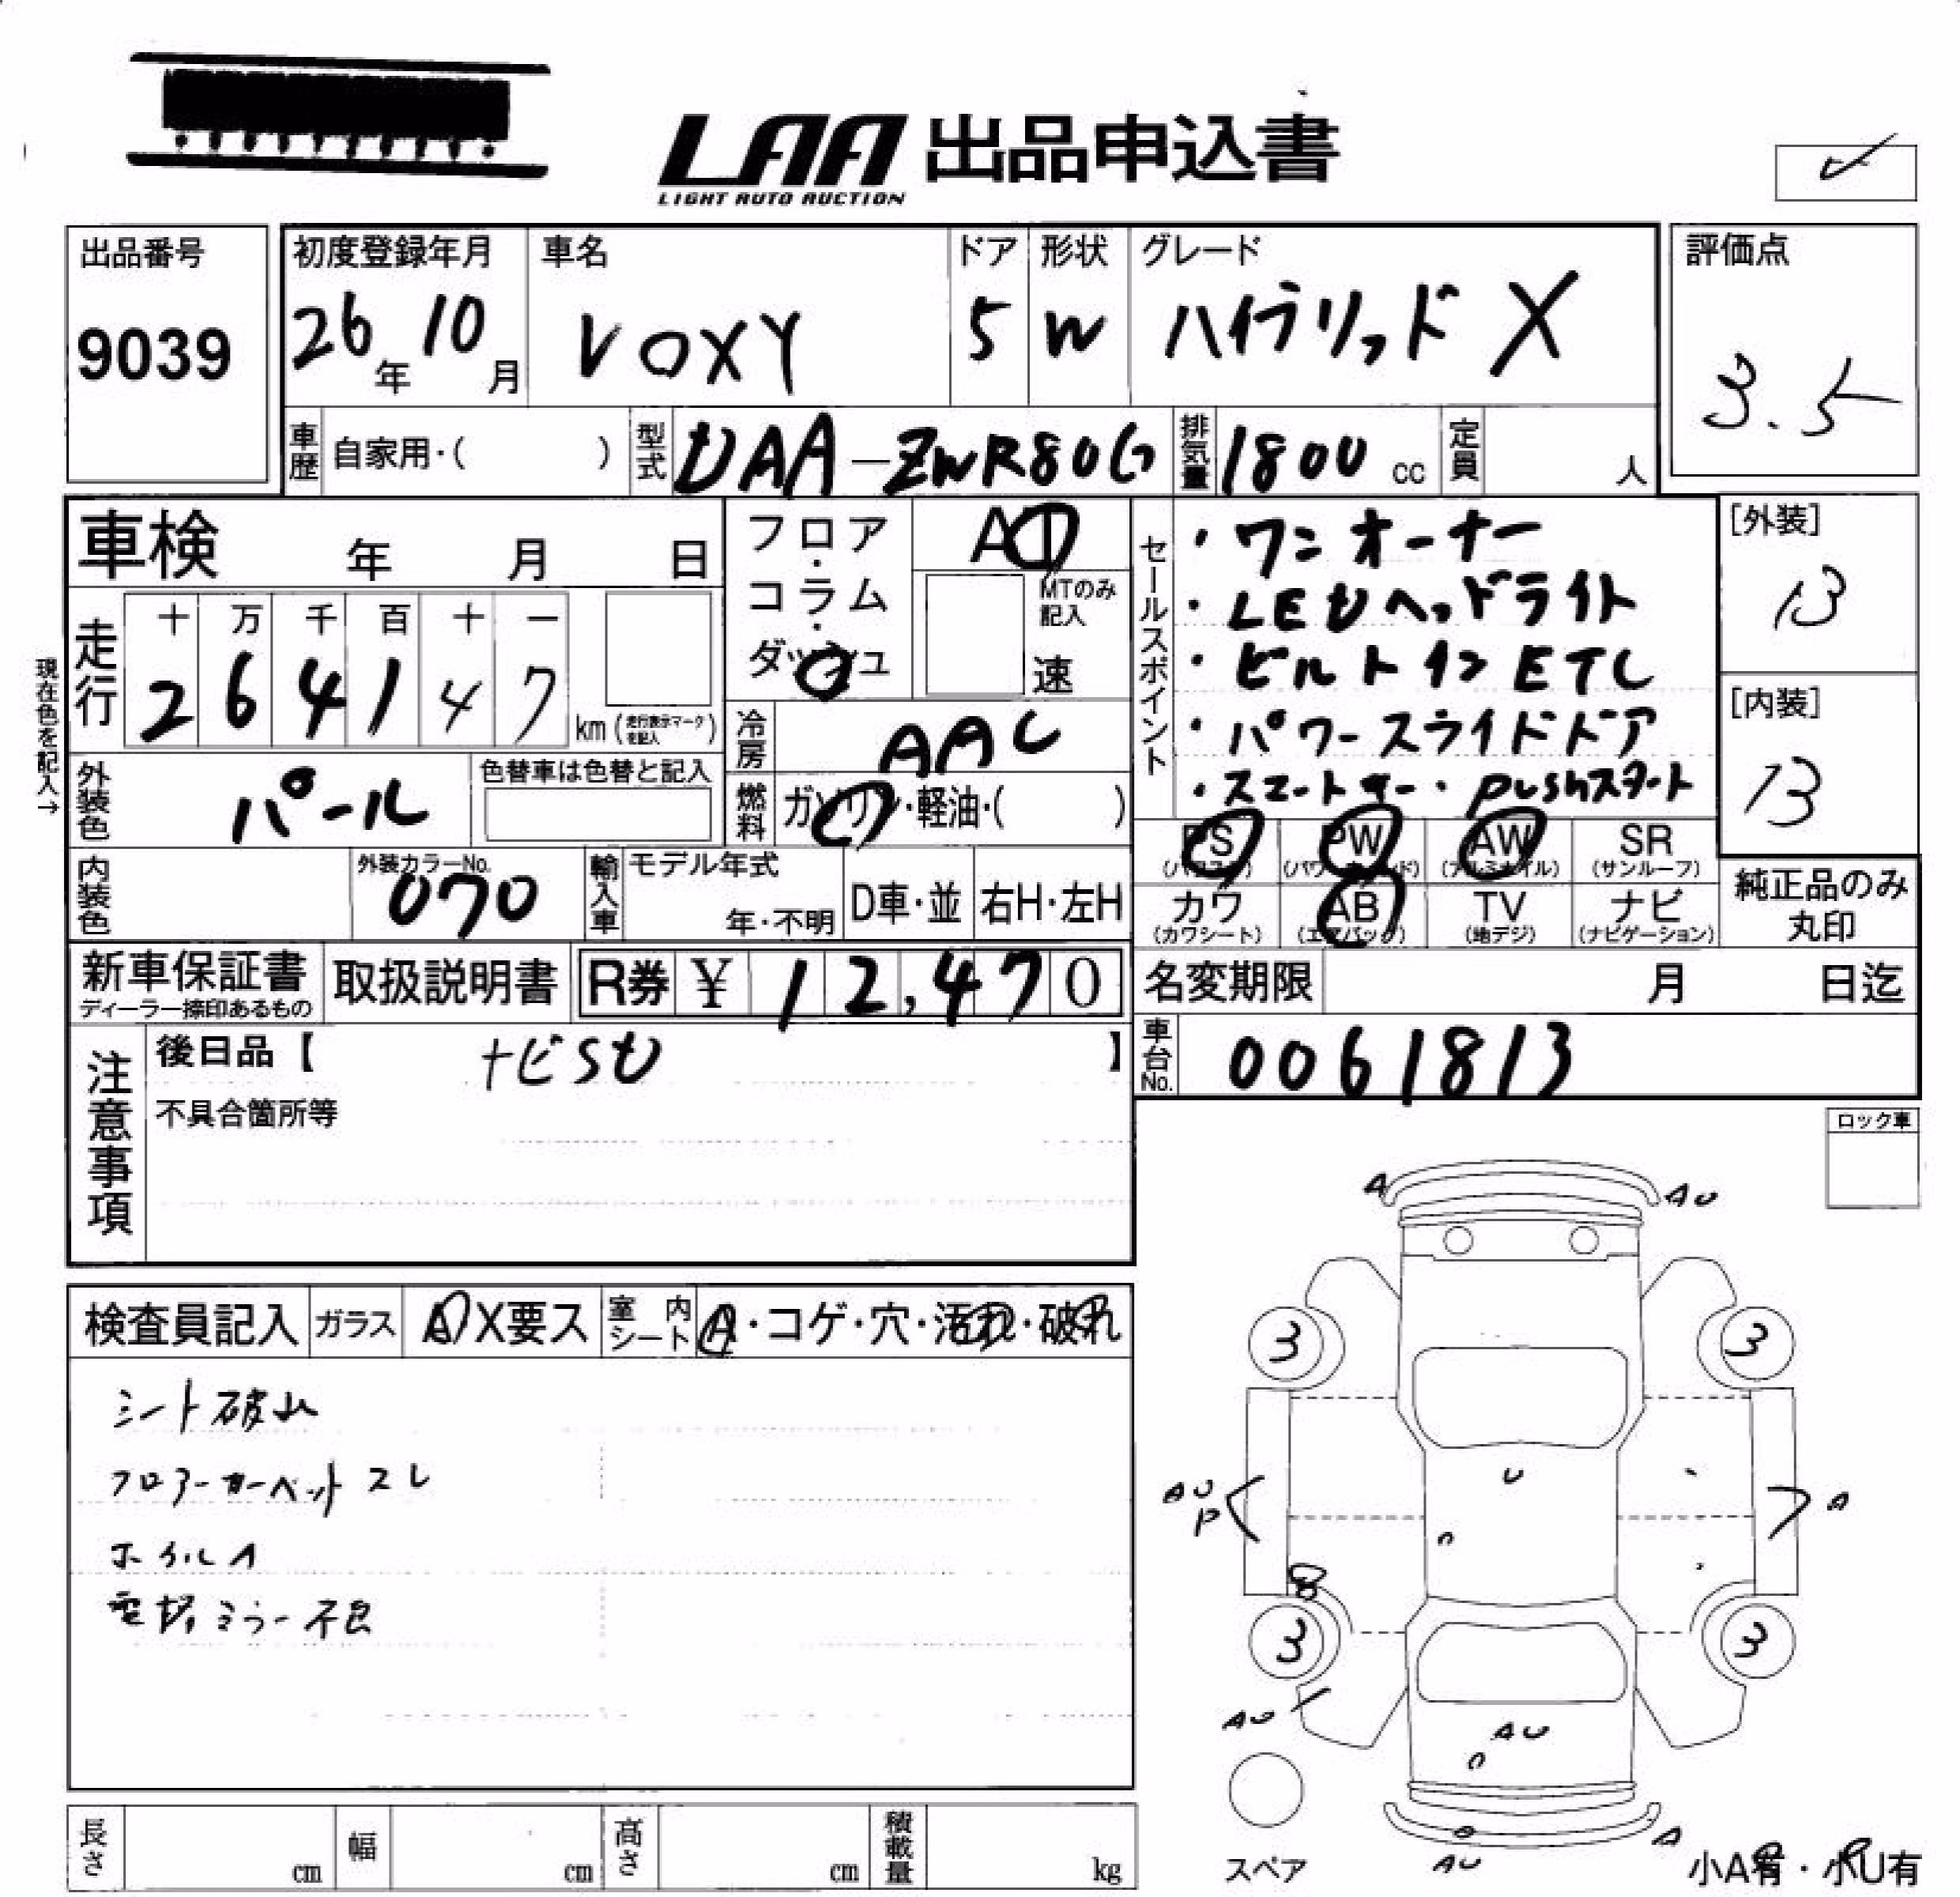 LAA 出品申込書
LIGHT AUTO AUCTION
出品番号
9039
初度登録年月
26年 10月
車名
VOXY
ドア
5
形状
W
グレード
ハイブリッド X
評価点
3.5
車歴 自家用・( )
型式 DAA-ZWR80G
排気量 1800 cc
定員 人
車検 年 月 日
フロア・コラム・ダッシュ
AT
MTのみ記入
速
現在色を記入→
走行
十 万 千 百 十 一
2 6 4 1 4 7
km (走行表示マークを記入)
冷房 AAC
外装色 パール
色替車は色替と記入
燃料 ガソリン・軽油・( )
内装色
外装カラーNo.
070
輸入車 モデル年式
年・不明
D車・並
右H・左H
セールスポイント
・ワンオーナー
・LEDヘッドライト
・ビルトインETC
・パワースライドドア
・スマートキー・pushスタート
[外装]
13
[内装]
13
PS (パワステ)
PW (パワーウィンド)
AW (アルミホイル)
SR (サンルーフ)
カワ (カワシート)
AB (エアバック)
TV (地デジ)
ナビ (ナビゲーション)
純正品のみ
丸印
新車保証書
ディーラー捺印あるもの
取扱説明書
R券 ¥ 12,470
名変期限 月 日迄
車台No. 0061813
注意事項
後日品【 ナビSD 】
不具合箇所等
ロック車
検査員記入
ガラス
A X要ス
室内シート
A・コゲ・穴・汚れ・破れ
シート破れ
フロアーカーペットスレ
ホイルA
電格ミラー不良
A
AU
3
3
U
AU
P
A
3
3
AU
AU
A
AU
スペア
小A有・小U有
長さ cm
幅 cm
高さ cm
積載量 kg